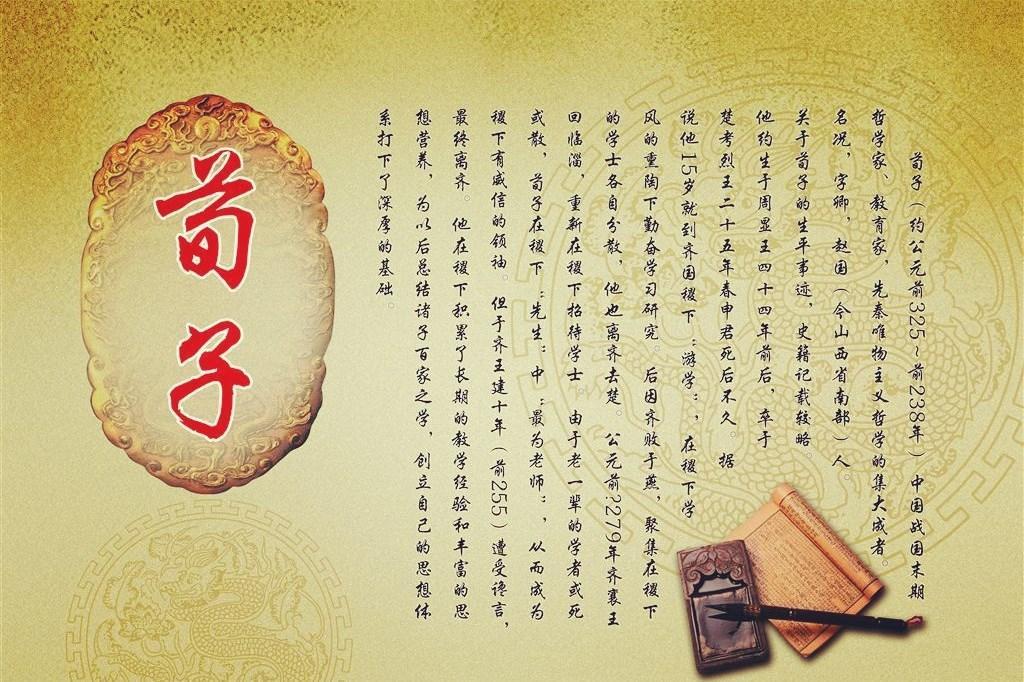 荀子
荀子（约公元前325～前238年）中国战国末期
哲学家、教育家，先秦唯物主义哲学的集大成者。
名况，字卿，赵国（今山西省南部）人
关于荀子的生平事迹，史籍记载较略。
他约生于周显王四十四年前后，卒于
楚考烈王二十五年春申君死后不久。据
说他15岁就到齐国稷下：游学：，在稷下学
风的熏陶下勤奋学习研究。后因齐败于燕，聚集在稷下
的学士各自分散，他也离齐去楚。公元前?279年齐襄王
回临淄，重新在稷下招待学士。由于老一辈的学者或死
或散，荀子在稷下：先生：中：最为老师：，从而成为
稷下有威信的领袖。但于齐王建十年（前255）遭受谗言，
最终离齐。他在稷下积累了长期的教学经验和丰富的思
想营养，为以后总结诸子百家之学，创立自己的思想体
系打下了深厚的基础。